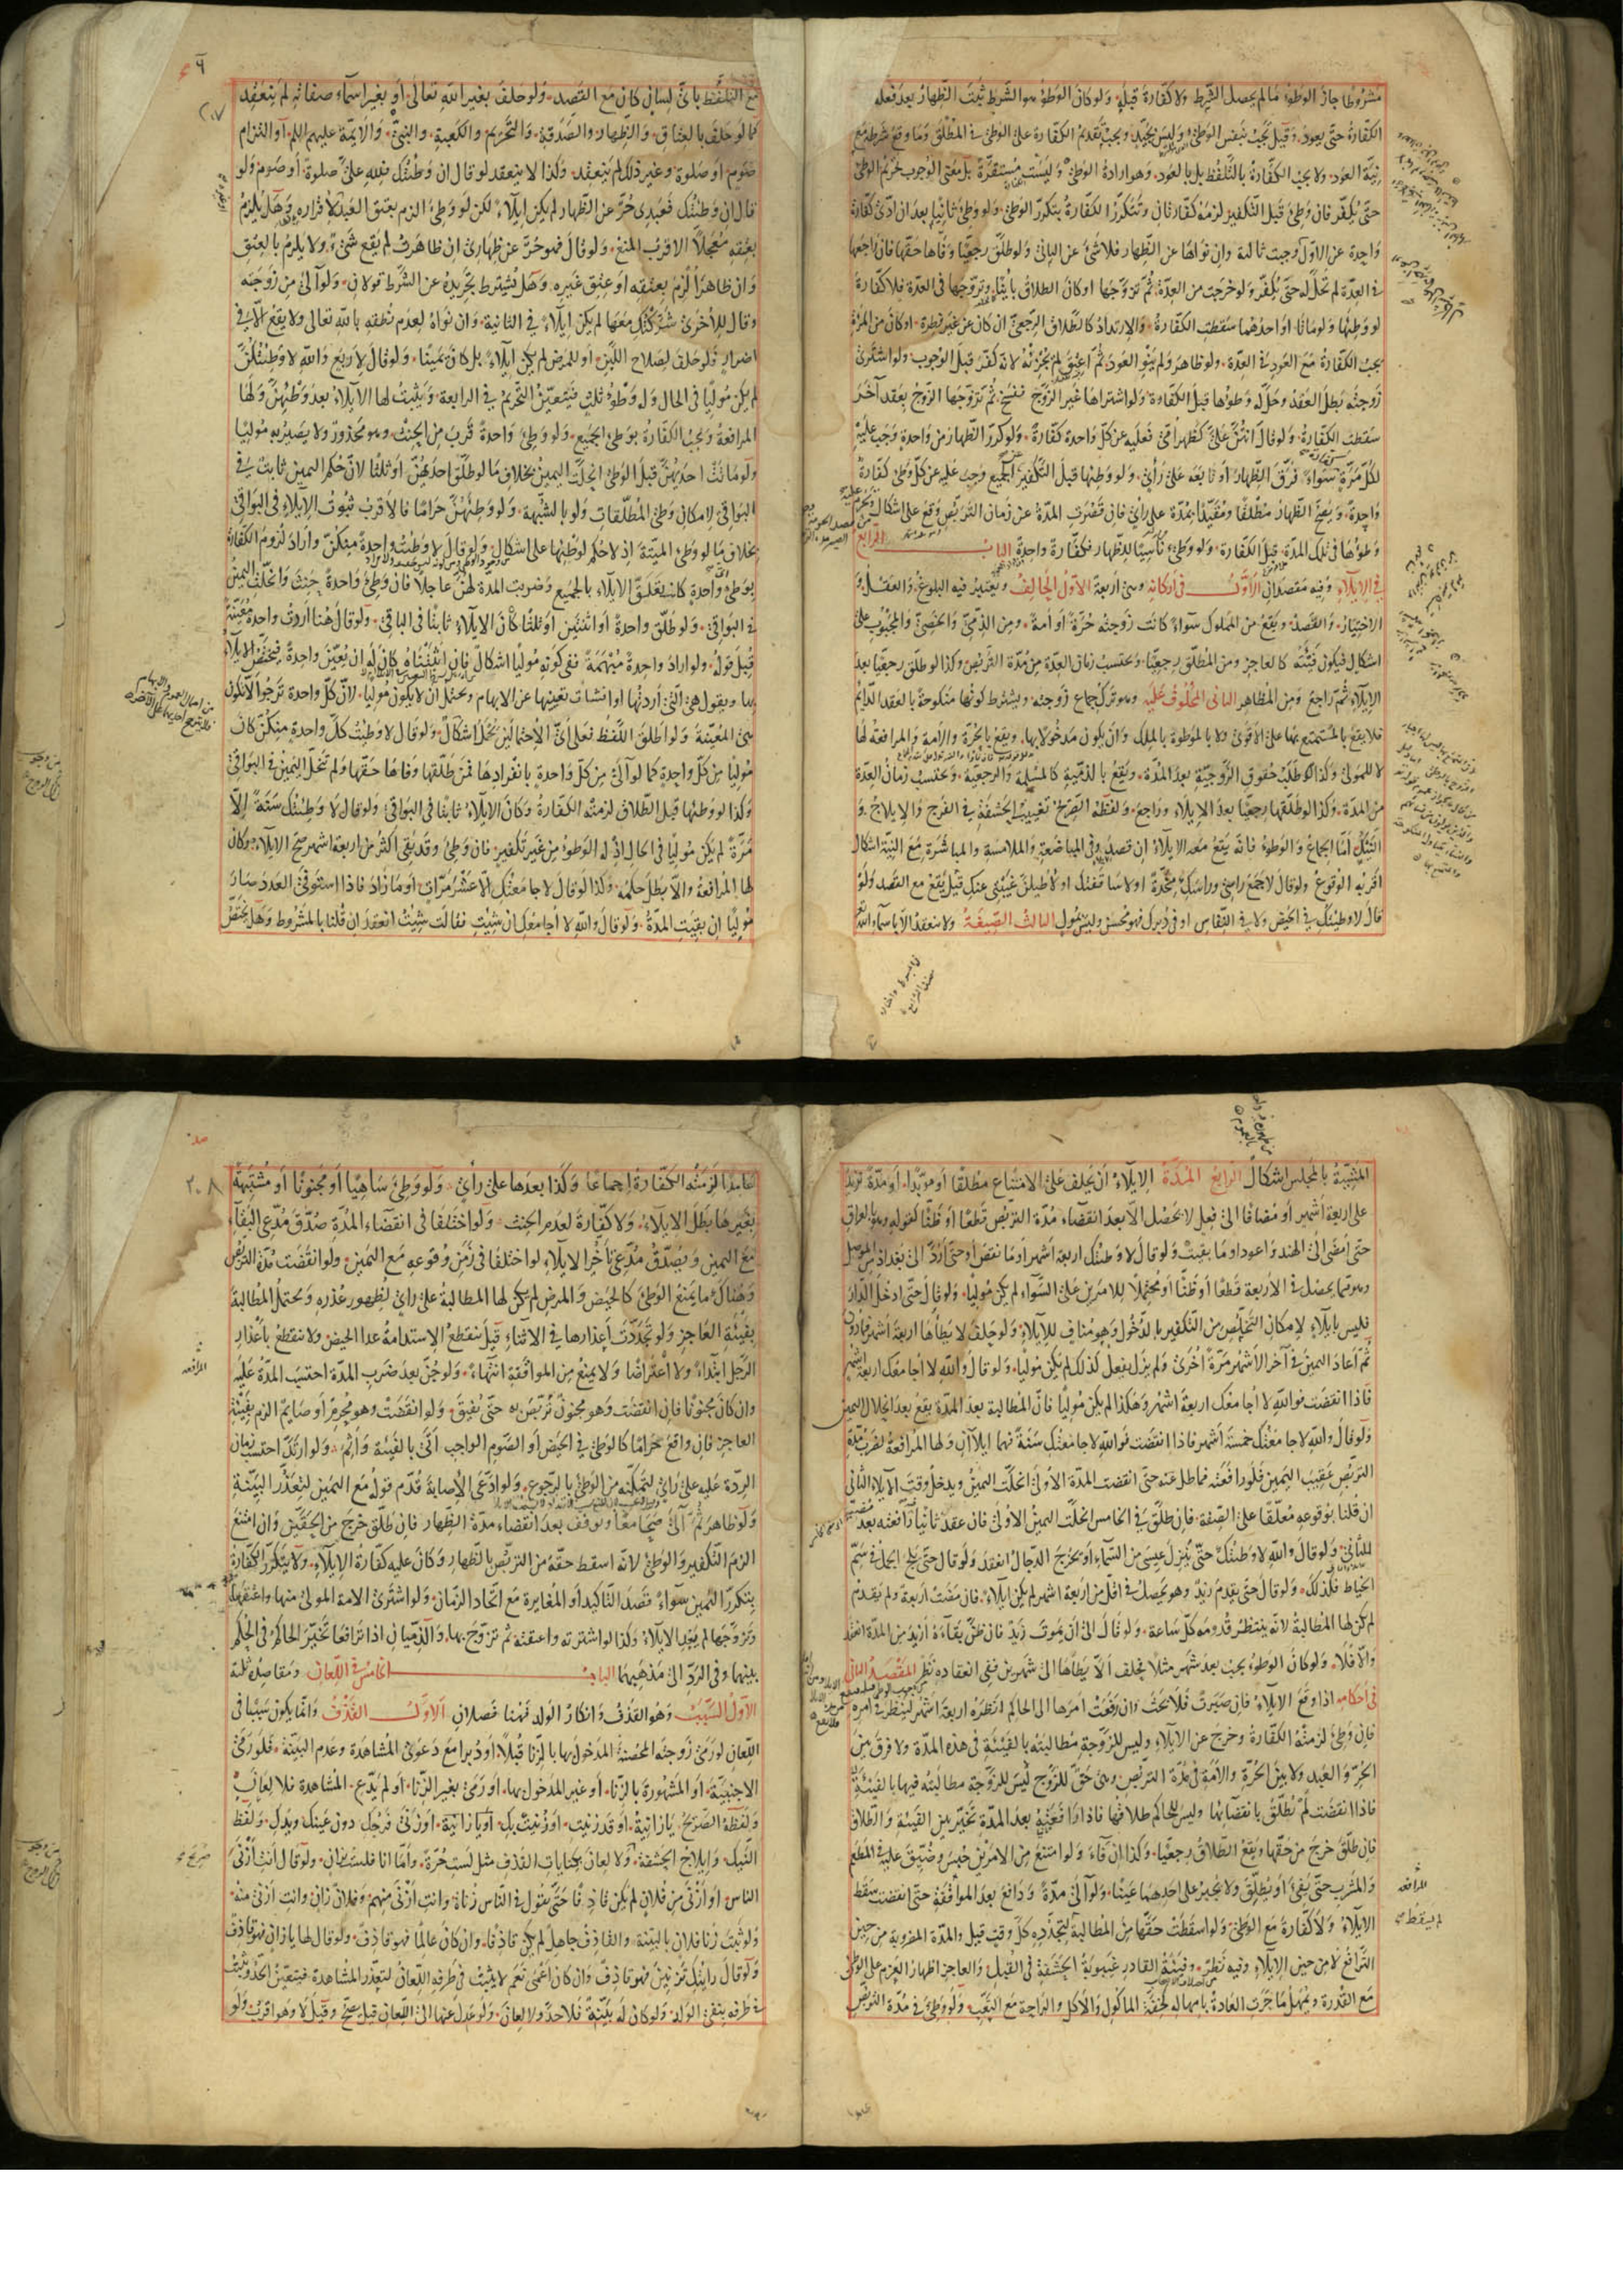 مشروطا جاز الوطؤ ما لم يحصل الشرط ولا كفارة قبله ولو كان الوطؤ هو الشرط ثبت الظهار بعد فعله
الكفارة حتى يعود وقيل تجب بنفس الوطئ وليس بجيد ويجب تقديم الكفارة على الوطئ في المطلق وما وقع شرطه مع
نية العود ولا يجب الكفارة بالتلفظ بل بالعود وهو ارادة الوطئ وليست مستقرة بل معنى الوجوب تحريم الوطئ
حتى يكفر فان وطئ قبل التكفير لزمه كفارتان وتتكرر الكفارة بتكرر الوطئ ولو وطئ ثانيا بعد ان ادى كفارة
واحدة عن الاول وجبت ثالثة وان نواها عن الظهار فلا شئ عن الباقي ولو طلق رجعيا وفاها حقها فان راجعها
في العدة لم تحل له حتى يكفر ولو خرجت من العدة ثم تزوجها او كان الطلاق باينا وتزوجها في العدة فلا كفارة
لو وطئها ولو ماتا او احدهما سقطت الكفارة والارتداد كالطلاق الرجعي ان كان عن غير فطرة او كان من المرأة
يجب الكفارة مع العود في العدة ولو ظاهر ولم ينو العود ثم اعتق لم يجزئه لانه كفر قبل الوجوب ولو اشترى
زوجته بطل العقد وحل له وطؤها قبل الكفارة ولو اشتراها غير الزوج ففسخ ثم تزوجها الزوج بعقد آخر
سقطت الكفارة ولو قال انتن علي كظهر امي فعليه عن كل واحدة كفارة ولو كرر الظهار من واحدة وجب عليه
لكل مرة سواء فرق الظهار او تابعه على رأي ولو وطئها قبل التكفير الجميع وجبت عليه عن كل وطئ كفارة
واحدة ويصح الظهار مطلقا ومقيدا بمدة على راي فان قصرت المدة عن زمان التربص وقع على اشكال
وطؤها في تلك المدة قبل الكفارة ولو وطئ ناسيا للظهار فكفارة واحدة الباب الرابع
في الايلاء وفيه مقصدان الاول في اركانه وهي اربعة الاول الحالف ويعتبر فيه البلوغ والعقل و
الاختيار والقصد ويقع من المملوك سواء كانت زوجته حرة او امة ومن الذمي والخصي والمجبوب على
اشكال فيكون فئته كالعاجز ومن المطلق رجعيا ويحتسب زمان العدة من مدة التربص وكذا لو طلق رجعيا بعد
الايلاء ثم راجع ومن المظاهر الثاني المحلوف عليه وهو ترك جماع زوجته ويشترط كونها منكوحة بالعقد الدايم
فلا يقع بالمستمتع بها على الاقوى ولا بالموطوة بالملك وان يكون مدخولا بها ويقع بالحرة والامة والمرافعة لها
لا للمولى وكذا لو طلبت حقوق الزوجية بعد المدة ويقع بالذمية كالمسلمة والرجعية ويحتسب زمان العدة
من المدة وكذا لو طلقها رجعيا بعد الايلاء وراجع ولفظه الصريح تغييب الحشفة في الفرج والايلاج و
النيك اما الجماع والوطؤ فانه يقع معه الايلاء ان قصده وفي المباضعة والملامسة والمباشرة مع النية اشكال
اقربه الوقوع ولو قال لا جمع راسي وراسك مخدة او لا ساقفتك او لاطيلن غيبتي عنك قيل يقع مع القصد ولو
قال لا وطيتك في الحيض ولا في النفاس او في دبرك فهو محسن وليس بمول الثالث الصيغة ولا ينعقد الا باسماء الله
مع التلفظ باي لسان كان مع القصد ولو حلف بغير الله تعالى او بغير اسماء صفاته لم ينعقد
كما لو حلف بالعتاق والظهار والصدقة والتحريم والكعبة والنبي والايمة عليهم السلم او التزام
صوم او صلوة وغير ذلك لم ينعقد وكذا لا ينعقد لو قال ان وطئتك فلله علي صلوة او صوم ولو
قال ان وطئتك فعبدي حر عن الظهار لم يكن ايلاء لكن لو وطئ الزم بعتق العبد لاقراره وهل يلزم
بعتقه معجلا الاقرب المنع ولو قال فهو حر عن ظهاري ان ظاهرت لم يقع شئ ولا يلزم بالعتق
وان ظاهر الزم بعتقه او عتق غيره وهل يشترط تجريده عن الشرط قولان ولو آلى من زوجته
وقال للاخرى شركتك معها لم يكن ايلاء في الثانية وان نواه لعدم نطقه بالله تعالى ولا يقع الا في
اضرار فلو حلف لصلاح اللبن او للمرض لم يكن ايلاء بل كان يمينا ولو قال لاربع والله لا وطئتكن
لم يكن موليا في الحال وله وطؤ ثلث فيتعين التحريم في الرابعة ويثبت لها الايلاء بعد وطئهن ولها
المرافعة وتجب الكفارة بوطئ الجميع ولو وطئ واحدة قرب من الحنث وهو محذور ولا يصير به موليا
ولو ماتت احديهن قبل الوطئ انحلت اليمين بخلاف ما لو طلق احديهن او ثلثا لان حكم اليمين ثابت في
البواقي لامكان وطئ المطلقات ولو بالشبهة ولو وطئهن حراما فالاقرب ثبوت الايلاء في البواقي
بخلاف ما لو وطئ الميتة اذ لا حكم لوطئها على اشكال ولو قال لا وطئت واحدة منكن واراد لزوم الكفارة
بوطئ واحدة كانت يتعلق الايلاء بالجميع وضربت المدة لهن عاجلا فان وطئ واحدة حنث وانحلت اليمين
في البواقي ولو طلق واحدة او اثنتين او ثلثا كان الايلاء ثابتا في الباقي ولو قال هنا اردت واحدة معينة
قبل قوله ولو اراد واحدة مبهمة ففي كونه موليا اشكال فان اثبتناه كان له ان يعين واحدة فيختص الايلاء
بها ويقول هي التي اردتها او انشات تعيينها عن الابهام ويحتمل ان لا يكون موليا لان كل واحدة ترجوا ان لا يكون
هي المعينة ولو اطلق اللفظ فعلى اي الاحتمالين تحمل اشكال ولو قال لا وطئت كل واحدة منكن كان
موليا من كل واحدة كما لو آلى من كل واحدة بانفرادها فمن طلقها وفاها حقها ولم تنحل اليمين في البواقي
وكذا لو وطئها قبل الطلاق لزمته الكفارة وكان الايلاء ثابتا في البواقي ولو قال لا وطئتك سنة الا
مرة لم يكن موليا في الحال اذ له الوطؤ من غير تكفير فان وطئ وقد بقى اكثر من اربعة اشهر صح الايلاء وكان
لها المرافعة والا بطل حكمه وكذا لو قال لا جامعتك الا عشر مرات او ما زاد فاذا استوفى العدد صار
موليا ان بقيت المدة ولو قال والله لا اجامعك ان شئت فقالت شئت انعقد ان قلنا بالمشروط وهل يختص
المشيئة بالمجلس اشكال الرابع المدة الايلاء ان يحلف على الامتناع مطلقا او مؤبدا او مدة تزيد
على اربعة اشهر او مضافا الى فعل لا يحصل الا بعد انقضاء مدة التربص قطعا او ظنا كقوله وهو بالعراق
حتى امضى الى الهند واعود او ما بقيت ولو قال لا وطئتك اربعة اشهر او ما نقص او حتى ارد الى بغداد من الموصل
وهو مما يحصل في الاربعة قطعا او ظنا او محتملا للامرين على السواء لم يكن موليا ولو قال حتى ادخل الدار
فليس بايلاء لامكان التخلص من التكفير بالدخول وهو مناف للايلاء ولو حلف لا يطأها اربعة اشهر فما دون
ثم اعاد اليمين في آخر الاشهر مرة اخرى ولم يزل يفعل كذلك لم يكن موليا ولو قال والله لا اجامعك اربعة اشهر
فاذا انقضت فوالله لا اجامعك اربعة اشهر وهكذا لم يكن موليا فان المطالبة بعد المدة يقع بعد انحلال اليمين
ولو قال والله لا جامعتك خمسة اشهر فاذا انقضت فوالله لا جامعتك سنة فهما ايلاآن ولها المرافعة لضرب مدة
التربص عقيب اليمين فلو رافعته فماطل عنه حتى انقضت المدة الاولى انحلت اليمين ويدخل وقت الايلاء الثاني
ان قلنا بوقوعه معلقا على الصفة فان طلق في الخامس انحلت اليمين الاولى فان عقد ثانيا رافعته بعد مضي
للثاني ولو قال والله لا وطئتك حتى ينزل عيسى من السماء او يخرج الدجال انعقد ولو قال حتى يلج الجمل في سم
الخياط فكذلك ولو قال حتى يقدم زيد وهو يحصل في اقل من اربعة اشهر لم يكن ايلاء فان مضت اربعة ولم يقدم
لم يكن لها المطالبة لانه ينتظر قدومه كل ساعة ولو قال الى ان يموت زيد فان ظن بقاءه ازيد من المدة انعقد
والا فلا ولو كان الوطؤ يجب بعد شهر مثلا فحلف الا يطأها الى شهرين ففي انعقاده نظر المقصد الثاني
في احكامه اذا وقع الايلاء فان صبرت فلا بحث وان رفعت امرها الى الحاكم انظره اربعة اشهر لينظر في امره
فان وطئ لزمته الكفارة وخرج عن الايلاء وليس للزوجة مطالبته بالفيئة في هذه المدة ولا فرق بين
الحر والعبد ولا بين الحرة والامة في مدة التربص وهي حق للزوج ليس للزوجة مطالبته فيها بالفيئة
فاذا انقضت لم تطلق بانقضائها وليس للحاكم طلاقها فاذا رافعته بعد المدة تخير بين الفيئة والطلاق
فان طلق خرج من حقها ويقع الطلاق رجعيا وكذا ان فاء ولو امتنع من الامرين حبس وضيق عليه في المطعم
والمشرب حتى يفئ او يطلق ولا يجبر على احدهما عينا ولو آلى مدة ودافع بعد المواقفة حتى انقضت سقط
الايلاء ولا كفارة مع الوطئ ولو اسقطت حقها من المطالبة لم يسقط لتجدده كل وقت قيل والمدة المضروبة من حين
الترافع لا من حين الايلاء وفيه نظر وفيئة القادر غيبوبة الحشفة في القبل والعاجز اظهار العزم على الوطئ
مع القدرة ويمهل ما جرت العادة بامهاله كخفة الماكول والاكل والراحة مع التعب ولو وطئ في مدة التربص
عامدا لزمته الكفارة اجماعا وكذا بعدها على رأي ولو وطئ ساهيا او مجنونا او مشتبهة
بغيرها بطل الايلاء ولا كفارة لعدم الحنث ولو اختلفا في انقضاء المدة صدق مدعي البقاء
مع اليمين ويصدق مدعي تاخر الايلاء لو اختلفا في زمن وقوعه مع اليمين ولو انقضت مدة التربص
وهناك ما يمنع الوطئ كالحيض والمرض لم يكن لها المطالبة على راي لظهور عذره ويحتمل المطالبة
بفيئة العاجز ولو تجددت اعذارها في الاثناء قيل ينقطع الاستدامة عدا الحيض ولا ينقطع باعذار
الرجل ابتداء ولا اعتراضا ولا يمنع من المواقفة انتهاء ولو جن بعد ضرب المدة احتسب المدة عليه
وان كان مجنونا فان انقضت وهو مجنون تربص به حتى يفيق ولو انقضت وهو محرم او صايم الزم بفيئة
العاجز فان واقع حراما كالوطئ في الحيض او الصوم الواجب اتى بالفيئة واثم ولو ارتد احتسب زمان
الردة عليه على راي لتمكنه من الوطئ بالرجوع ولو ادعى الاصابة قدم قوله مع اليمين لتعذر البينة
ولو ظاهر ثم آلى صحا معا وتوقف بعد انقضاء مدة الظهار فان طلق خرج من الحقين وان امتنع
الزم التكفير والوطئ لانه اسقط حقه من التربص بالظهار وكان عليه كفارة الايلاء ولا يتكرر الكفارة
بتكرر اليمين سواء قصد التاكيد او المغايرة مع اتحاد الزمان ولو اشترى الامة المولى منها واعتقها
وتزوجها لم يعد الايلاء وكذا لو اشترته واعتقته ثم تزوج بها والذميان اذا ترافعا تخير الحاكم في الحكم
بينهما وفي الرد الى مذهبهما الباب الخامس في اللعان ومقاصده ثلثة
الاول السبب وهو القذف وانكار الولد فههنا فصلان الاول القذف وانما يكون سببا في
اللعان لو رمى زوجته المحصنة المدخول بها بالزنا قبلا او دبرا مع دعوى المشاهدة وعدم البينة فلو رمى
الاجنبية او المشهورة بالزنا او غير المدخول بها او رمى بغير الزنا او لم يدع المشاهدة فلا لعان
ولفظه الصريح يا زانية او قد زنيت او زنيت بك او يا زانية او زنى فرجك دون عينك ويدك ولفظ
النيك وايلاج الحشفة ولا لعان بكنايات القذف مثل لست حرة واما انا فلست بزان ولو قال انت ازنى
الناس او ازنى من فلان لم يكن قاذفا حتى يقول في الناس زناة وانت ازنى منهم وفلان زان وانت ازنى منه
ولو ثبت زنا فلان بالبينة والقاذف جاهل لم يكن قاذفا وان كان عالما فهو قاذف ولو قال لها يا زان فهو قاذف
ولو قال رايتك تزنين فهو قاذف وان كان اعمى نعم لا يثبت في طرفه اللعان لتعذر المشاهدة فيتعين الحد ويثبت
في طرفه بنفي الولد ولو كان له بينة فلا حد ولا لعان ولو عدل عنها الى اللعان قيل يصح وقيل لا وهو اقرب ولو